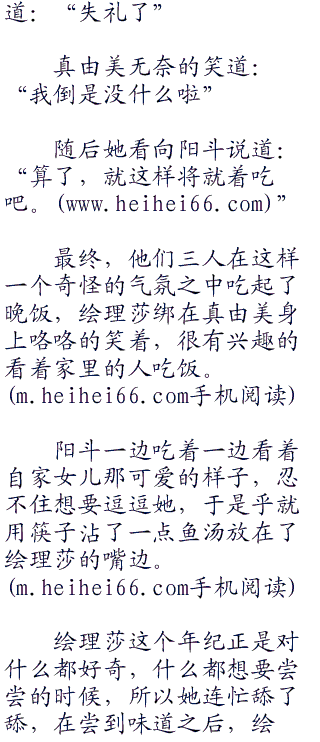 道：“失礼了”
真由美无奈的笑道：
“我倒是没什么啦”
随后她看向阳斗说道：
“算了，就这样将就着吃
吧。(www.heihei66.com)”
最终，他们三人在这样
一个奇怪的气氛之中吃起了
晚饭，绘理莎绑在真由美身
上咯咯的笑着，很有兴趣的
看着家里的人吃饭。
(m.heihei66.com手机阅读)
阳斗一边吃着一边看着
自家女儿那可爱的样子，忍
不住想要逗逗她，于是乎就
用筷子沾了一点鱼汤放在了
绘理莎的嘴边。
(m.heihei66.com手机阅读)
绘理莎这个年纪正是对
什么都好奇，什么都想要尝
尝的时候，所以她连忙舔了
舔，在尝到味道之后，绘